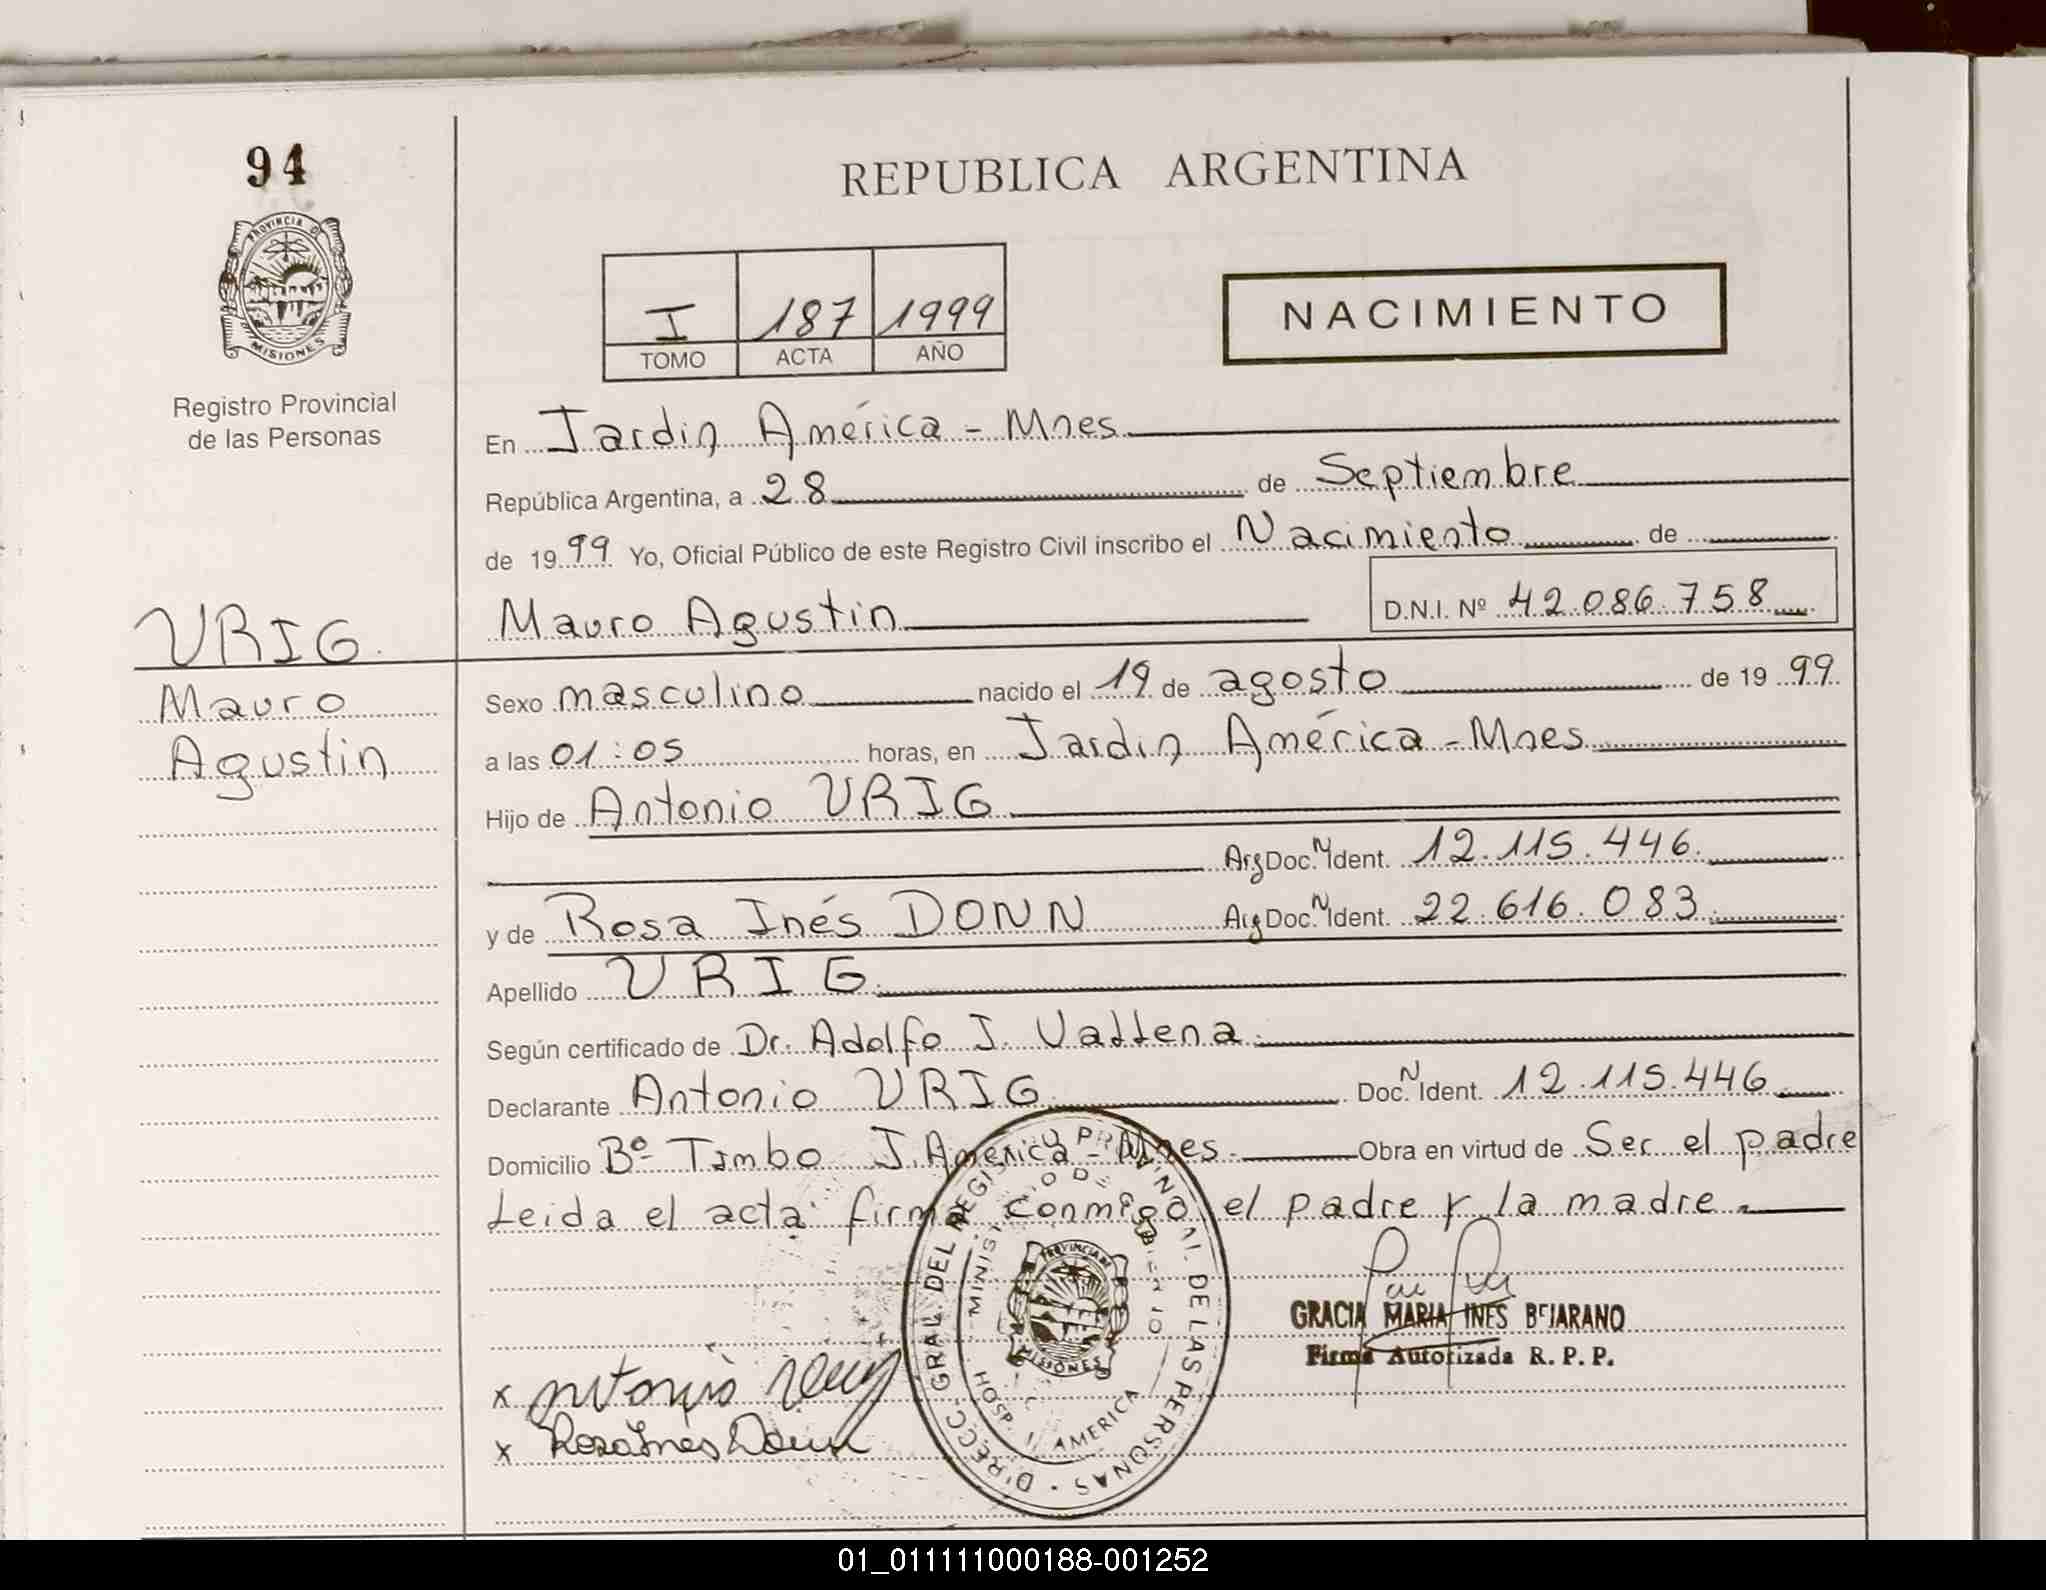 94
REPUBLICA ARGENTINA
PROVINCIA DE
MISIONES
Registro Provincial
de las Personas
I 187 1999
TOMO ACTA AÑO
NACIMIENTO
En Jardin América - Mnes
República Argentina, a 28 de Septiembre
de 1999 Yo, Oficial Público de este Registro Civil inscribo el Nacimiento de
Mauro Agustin D.N.I. Nº 42.086.758
URIG
Mauro
Agustin
Sexo masculino nacido el 19 de agosto de 1999
a las 01:05 horas, en Jardin América - Mnes
Hijo de Antonio URIG
Arg Doc. N Ident. 12.115.446.
y de Rosa Inés DONN Arg Doc. N Ident. 22.616.083.
Apellido URIG.
Según certificado de Dr. Adolfo J.
Declarante Antonio URIG. Doc. N Ident. 12.115.446.
Domicilio Bº Timbo J. América - Mnes. Obra en virtud de Ser el padre
Leida el acta firma conmigo el padre y la madre.
GRACIA MARIA INES BEJARANO
Firma Autorizada R. P. P.
x Antonio Urig
x Rosa Ines Donn
DIRECC. GRAL. DEL REGISTRO PROVINCIAL DE LAS PERSONAS
MINISTERIO DE GOBIERNO
PROVINCIA DE
MISIONES
HOSP. J. AMERICA
01_011111000188-001252